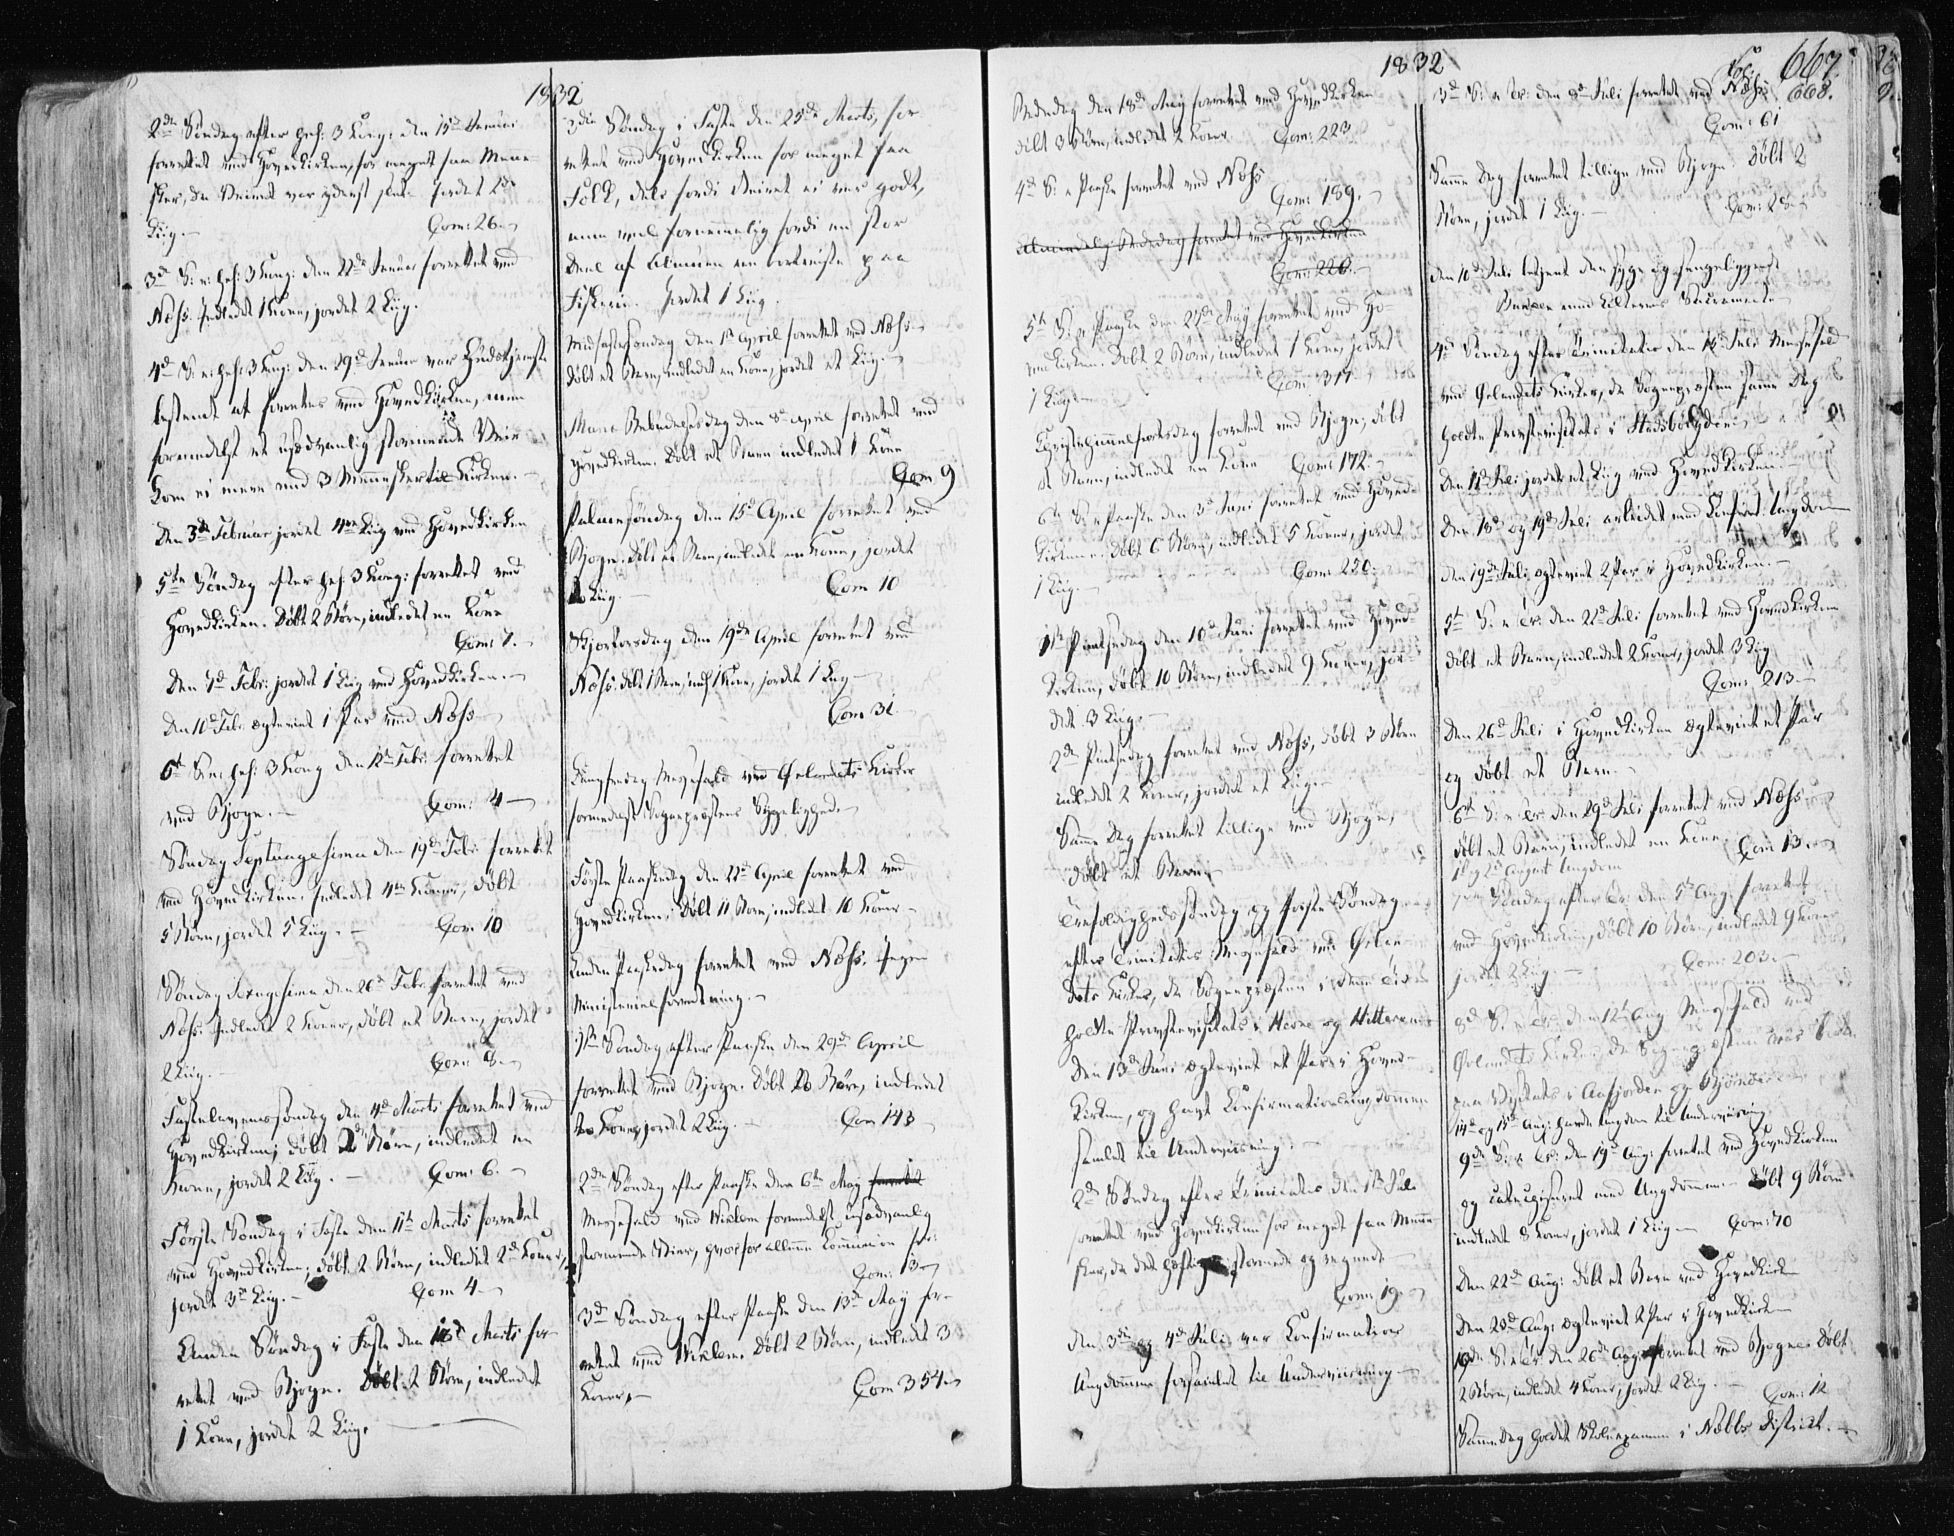 1832
2den Søndag efter hel: 3 Kong: den 15de Januar
forrettet ved Hovedkirken for meget faa Menne-
sker, da Veiret var yderst slet. Jordet 1
Liig.— Com: 26.
3d S: e: hel: 3 Kong: den 22de Januar forrettet ved
Næss. Indledet 1 Kone, jordet 2 Liig.
4d S: e: hel: 3 Kong: den 29d Januar var Gudstjeneste
bestemt at forrettes ved Hovedkirken, men
formedelst et usædvanlig stormende Veir
kom ei mere end 3 Mennesker til Kirken.—
Den 3de Februar jordet 4re Liig ved Hovedkirken
5te Søndag efter hel: 3 Kong: forrettet ved
Hovedkirken. Døbt 2 Børn, indledet en Kone
Com: 7.
Den 7d Febr: jordet 1 Liig ved Hovedkirken.—
Den 11d Febr: ægteviet 1 Par ved Næss
6te S: e: hel: 3 Kong den 12te Febr: forrettet
ved Bjogn.— Com: 4—
Søndag Septuagesima den 19d Febr: forrettet
ved Hovedkirken. Indledet 4re Koner, døbt
5 Børn, jordet 5 Liig.— Com. 10
Søndag Sexagesima den 26d Febr. forrettet ved
Næss. Indledet 2 Koner, døbt et Barn, jordet
2 Liig.— Com: 8.—
Fastelavenssøndag den 4d Marts forrettet ved
Hovedkirken; døbt 2de Børn, indledet en
Kone, jordet 2 Liig.— Com: 6.—
Første Søndag i Faste den 11te Marts forrettet
ved Hovedkirken; døbt 2 Børn, indledet 2de Koner,
jordet 3de Liig.— Com 4—
Anden Søndag i Faste den 18d Marts for-
rettet ved Bjogn. Døbt 2 Børn, indledet
1 Kone, jordet 2 Liig.
3die Søndag i Faste den 25de Marts, for-
rettet ved Hovedkirken for meget faa
Folk, dels fordi Veiret ei var godt,
men vel fornemmelig fordi en stor
Deel af Almuen een bortreiste paa
Fiskerie. Jordet 1 Liig.
Midfastesøndag den 1ste April forrettet ved Næss.
døbt et Barn, indledet en Kone, jordet et Liig.—
Mariæ Bebudelsesdag den 8d April forrettet ved
Hovedkirken. Døbt et Barn indledet 1 Kone
Com 9
Palmesøndag den 15d April forrettet ved
Bjogn. Døbt et Barn, indledet en Kone, jordet
Liig.— Com 10
Skjertorsdag den 19de April forrettet ved
Næss. døbt 1 Barn, indl 1 Kone, jordet 1 Liig—
Com 31.
Langfredag Messefald ved Ørlandets Kirker
formedelst Sogneprestens Sygelighed.—
Første Paaskedag den 22d April forrettet ved
Hovedkirken. Døbt 11 Børn, indledet 10 Koner—
Anden Paaskedag forrettet ved Næss. Ingen
Ministerial forretning.—
1ste Søndag efter Paaske den 29de April
forrettet ved Bjogn. Døbt Børn, indledet
to Koner, jordet 2 Liig.— Com 143
2den Søndag efter Paaske den 6te May forrettet
Messefald ved Viklem formedelst usædvanlig
stormende Veir, hvorfor alleene Communion for:
Com: 13
3d Søndag efter Paaske den 13de May for-
rettet ved Viklem. Døbt 2 Børn, indledet 3
Koner,— Com 354
1832
Fol. 667.
668.
Bededag den 18d May forrettet ved Hovedkirken
døbt 3 Børn, indledet 2 Koner. Com: 223
4d S: e Paaske forrettet ved Næss
Com: 189.
Almindelig Bededag forrettet ved Hovedkirken
Com: 220.—
5te S: e Paaske den 27de May forrettet ved Ho-
vedkirken. Døbt 2 Børn, indledet 1 Kone, jordet
1 Liig.— Com: 317.
Christihimmelfartsdag forrettet ved Bjogn; døbt
et Barn, indledet en Kone Com: 172.—
6te S: e Paaske den 3d Juni forrettet ved Hoved-
kirken. Døbt 6 Børn, indledet 5 Koner, jordet
1 Liig.— Com: 220.
1ste Pintsedag den 10d Juni forrettet ved Hoved-
kirken, døbt 10 Børn, indledet 9 Koner, jor-
det 3 Liig.—
2d Pintsedag forrettet ved Næss, døbt 3 Børn
indledet 2 Koner, jordet et Liig.
Samme Dag forrettet tillige ved Bjogn,
døbt et Barn.
Trefoldighedssøndag og første Søndag
efter Trinitatis Messefald ved Ørlan-
dets Kirker, da Sognepresten i denne Tid
holdte Provstevisitats i Herøe og Hitteren
Den 13d Juni ægteviet et Par i Hoved-
kirken, og havt Confirmationsungdommen
samlet til Underviisning.—
2d Søndag efter Trinitatis den 1ste Juli
forrettet ved Hovedkirken for meget faa Menne-
sker, da det heftig stormede og regnede—
Com: 19.
Den 3de og 4d Juli var Confirmations
Ungdommen forsamlet til Underviisning.
3d S: e Tr: den 8d Juli forrettet ved Næss
Com: 61
Samme Dag forrettet tillige ved Bjogn. Døbt 2
Børn, jordet 1 Liig.— Com: 28.
Den 10d Juli betjent den syge og sengeliggende
med Alterens Sacramente
4d Søndag efter Trinitatis den 15d Juli Messefald
ved Ørlandets Kirker, da Sognepresten samme Dag
holdte Provstevisitats i Stadsbøygden.
Den 17d Juli jordet et Liig ved Hovedkirken.—
Den 18d og 19d Juli arbeidet med Confirm: Ungdom
Den 19d Juli ægteviet 2 Par i Hovedkirken.—
5te S: e Tr: den 22d Juli forrettet ved Hovedkirken
døbt et Barn, indledet 2 Koner, jordet 3 Liig
Com: 213.—
Den 26d Juli i Hovedkirken ægteviet et Par
og døbt et Barn.
6te S: e Tr: den 29d Juli forrettet ved Næss
døbt et Barn, indledet en Kone Com 13.
1d og 2d August Ungdom
7de Søndag efter Tr: den 5te Aug: forrettet
ved Hovedkirken, døbt 10 Børn, indledet 9 Koner
jordet 2 Liig.— Com: 203.—
8d S: e Tr: den 12te Aug Messefald ved
Ørlandets Kirker, da Sognepresten var
paa Visitats i Aafjorden og Bjønør
14d og 15d Aug: havde Ungdom til Underviisning
9de S: e Tr: den 19d Aug: forrettet ved Hovedkirken
og catechiseret med Ungdommen. Døbt 9 Børn
indledet 8 Koner, jordet 1 Liig— Com: 70
Den 22d Aug: døbt et Barn ved Hovedkirk
Den 23d Aug: ægteviet 2 Par i Hovedkirk
10de S: e Tr: den 26de Aug: forrettet ved Bjogn. Døbt
2 Børn, indledet 4 Koner, jordet 2 Liig.— Com: 12
Samme Dag holdt Skoleexamen i Næbbs District.—